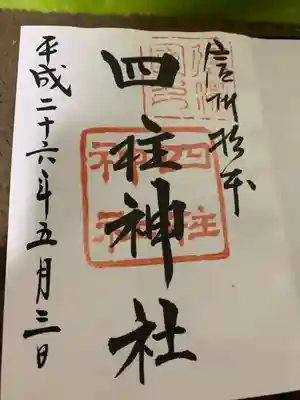 信州松本
四柱神社
平成二十六年五月三日
四柱
神社